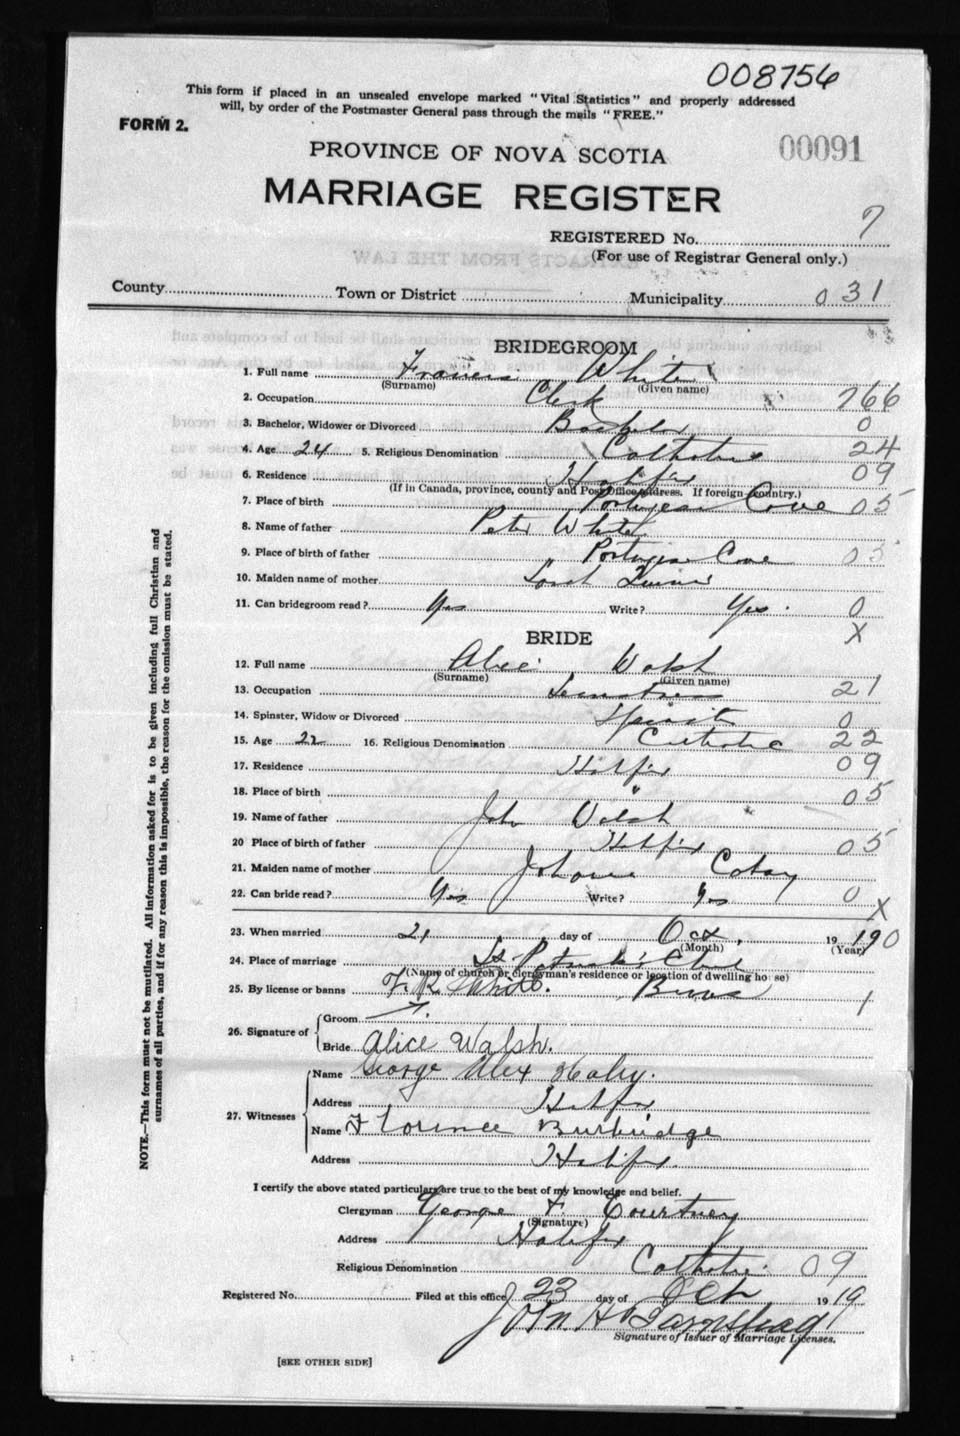 008756
This form if placed in an unsealed envelope marked "Vital Statistics" and properly addressed
will, by order of the Postmaster General pass through the mails "FREE."
FORM 2.
PROVINCE OF NOVA SCOTIA
00091
MARRIAGE REGISTER
REGISTERED No. 7
(For use of Registrar General only.)
County Town or District Municipality 031
BRIDEGROOM
1. Full name Francis White
(Surname) (Given name)
2. Occupation Clerk 766
3. Bachelor, Widower or Divorced Bachelor 0
4. Age 24 5. Religious Denomination Catholic 24
6. Residence Halifax 09
(If in Canada, province, county and Post Office address. If foreign country.)
7. Place of birth Portugese Cove 05
8. Name of father Peter White
9. Place of birth of father Portugese Cove 05
10. Maiden name of mother Sarah
11. Can bridegroom read? Yes Write? Yes. 0
X
BRIDE
12. Full name Alice Walsh
(Surname) (Given name)
13. Occupation Seamstress 21
14. Spinster, Widow or Divorced Spinster 0
15. Age 22 16. Religious Denomination Catholic 22
17. Residence Halifax 09
18. Place of birth " 05
19. Name of father John Walsh
20 Place of birth of father Halifax 05
21. Maiden name of mother Johana
22. Can bride read? Yes Write? Yes 0
X
23. When married 21 day of Oct. 19 19 0
(Month) (Year)
24. Place of marriage St Patrick's Church
(Name of church or clergyman's residence or location of dwelling house)
25. By license or banns Banns 1
26. Signature of
Groom F. R. White.
Bride Alice Walsh.
27. Witnesses
Name George Alex Haley.
Address Halifax
Name Florence Burbridge
Address Halifax.
I certify the above stated particulars are true to the best of my knowledge and belief.
Clergyman George F. Courtney
(Signature)
Address Halifax
Religious Denomination Catholic 09
Registered No. Filed at this office 23 day of Oct 19 19
John H Barnstead
Signature of Issuer of Marriage Licenses.
[SEE OTHER SIDE]
NOTE.—This form must not be mutilated. All information asked for is to be given including full Christian and
surnames of all parties, and if for any reason this is impossible, the reason for the omission must be stated.